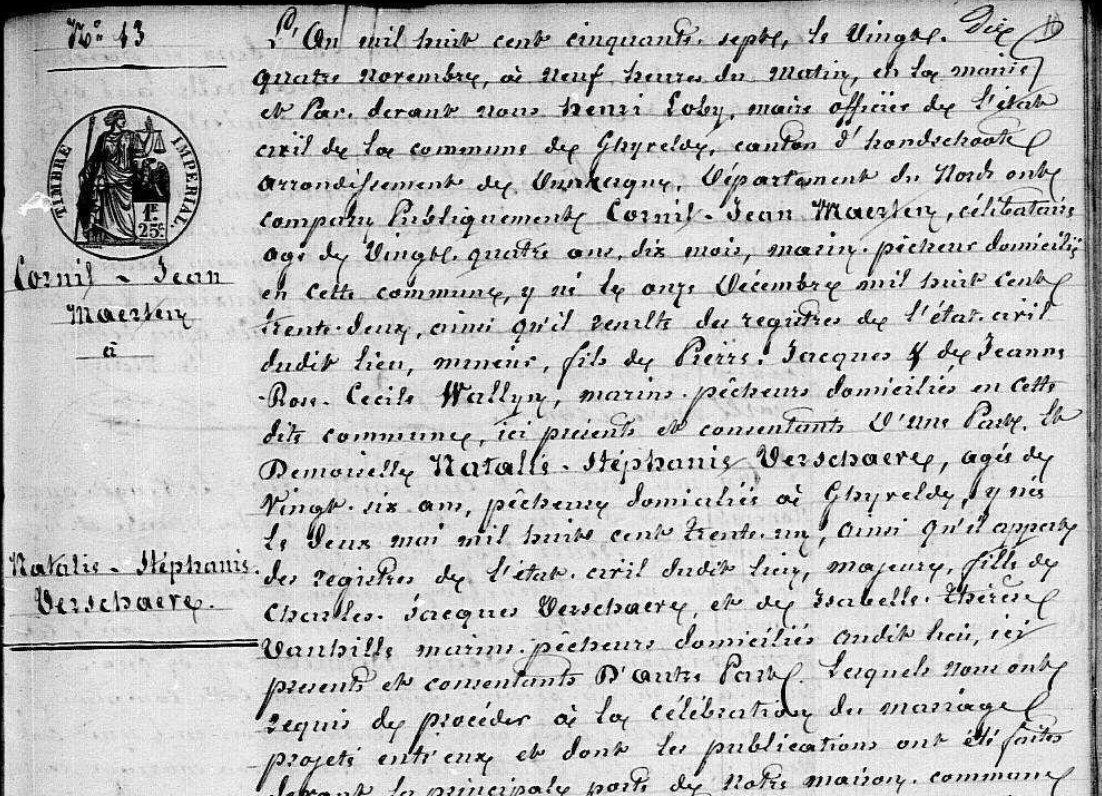 N° 13
L'An mil huit cent cinquante sept, le Vingt. Dix
quatre novembre, à neuf heures du matin, en la mairie
et Par. devant nous henri Loby, maire officier de l'état
civil de la commune de Ghyvelde, canton d'hondschoote
arrondissement de Dunkerque, Département du Nord ont
comparu Publiquement Cornil-Jean Maerten, célibataire
agé de Vingt. quatre ans, dix mois, marin. pêcheur domicilié
en cette commune, y né le onze Décembre mil huit cent
trente-deux, ainsi qu'il resulte des registres de l'état civil
dudit lieu, mineur, fils de Pierre. Jacques & de Jeanne
Rose. Cecile Wallyn, marins. pêcheurs domiciliés en cette
dite commune, ici présents et consentants D'une Part. Et
Demoiselle Natalie-Stéphanie Verschaere, agée de
Vingt-six ans, pêcheuse domiciliée à Ghyvelde, y née
le deux mai mil huit cent trente-un, ainsi qu'il appert
des registres de l'état-civil dudit lieu, majeure, fille de
Charles. Jacques Verschaere, et de Isabelle. Thérèse
Vanhille marins-pêcheurs domiciliés audit lieu, ici
présents et consentants D'autre Part. Lesquels nous ont
requis de procéder à la célébration du mariage
projeté entr'eux et dont les publications ont été faites
devant la principale porte de notre maison commune
TIMBRE IMPERIAL.
1F
25c.
Cornil-Jean
Maerten
à
Natalie-Stéphanie
Verschaere.